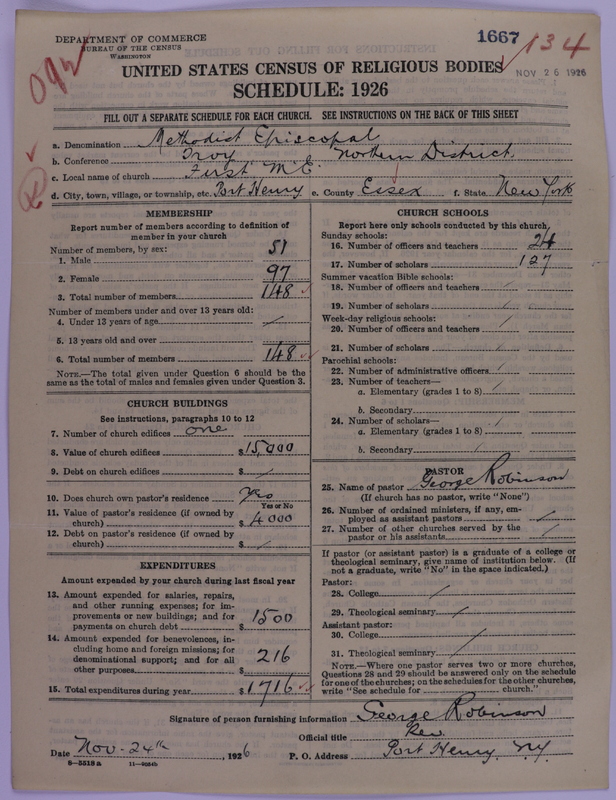 DEPARTMENT OF COMMERCE
BUREAU OF THE CENSUS
WASHINGTON
1667
134
NOV 26 1926
UNITED STATES CENSUS OF RELIGIOUS BODIES
SCHEDULE: 1926
FILL OUT A SEPARATE SCHEDULE FOR EACH CHURCH. SEE INSTRUCTIONS ON THE BACK OF THIS SHEET
a. Denomination Methodist Episcopal
b. Conference Troy Northern District
c. Local name of church First M E
d. City, town, village, or township, etc. Port Henry e. County Essex f. State New York
MEMBERSHIP
Report number of members according to definition of
member in your church
Number of members, by sex:
1. Male 51
2. Female 97
3. Total number of members 148
Number of members under and over 13 years old:
4. Under 13 years of age /
5. 13 years old and over
6. Total number of members 148
NOTE.—The total given under Question 6 should be
the same as the total of males and females given under Question 3.
CHURCH BUILDINGS
See instructions, paragraphs 10 to 12
7. Number of church edifices one
8. Value of church edifices $ 15,000
9. Debt on church edifices $ /
10. Does church own pastor's residence Yes
Yes or No
11. Value of pastor's residence (if owned by
church) $ 4000
12. Debt on pastor's residence (if owned by
church) $ /
EXPENDITURES
Amount expended by your church during last fiscal year
13. Amount expended for salaries, repairs,
and other running expenses; for im-
provements or new buildings; and for
payments on church debt $ 1500
14. Amount expended for benevolences, in-
cluding home and foreign missions; for
denominational support; and for all
other purposes $ 216
15. Total expenditures during year $ 1716
CHURCH SCHOOLS
Report here only schools conducted by this church
Sunday schools:
16. Number of officers and teachers 24
17. Number of scholars 127
Summer vacation Bible schools:
18. Number of officers and teachers /
19. Number of scholars /
Week-day religious schools:
20. Number of officers and teachers /
21. Number of scholars /
Parochial schools:
22. Number of administrative officers /
23. Number of teachers—
a. Elementary (grades 1 to 8) /
b. Secondary
24. Number of scholars—
a. Elementary (grades 1 to 8) /
b. Secondary /
PASTOR
25. Name of pastor George Robinson
(If church has no pastor, write "None")
26. Number of ordained ministers, if any, em-
ployed as assistant pastors /
27. Number of other churches served by the
pastor or his assistants /
If pastor (or assistant pastor) is a graduate of a college or
theological seminary, give name of institution below. (If
not a graduate, write "No" in the space indicated.)
Pastor:
28. College /
29. Theological seminary /
Assistant pastor:
30. College /
31. Theological seminary /
NOTE.—Where one pastor serves two or more churches,
Questions 28 and 29 should be answered only on the schedule
for one of the churches; on the schedules for the other churches,
write "See schedule for church."
Signature of person furnishing information George Robinson
Official title Rev.
Date Nov-24th, 1926 P. O. Address Port Henry. N.Y.
8-5518a 11-9054b